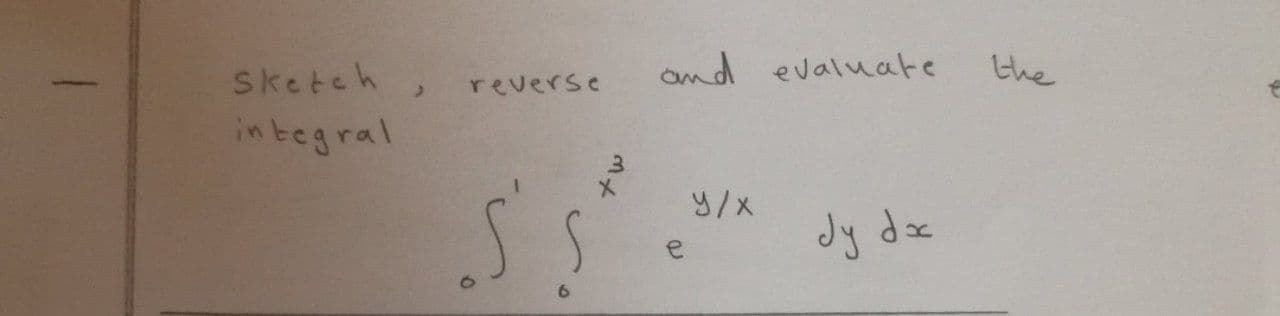 Sketch, reverse and evaluate the
integral
∫₀¹ ∫₀^{x³} e^{y/x} dy dx